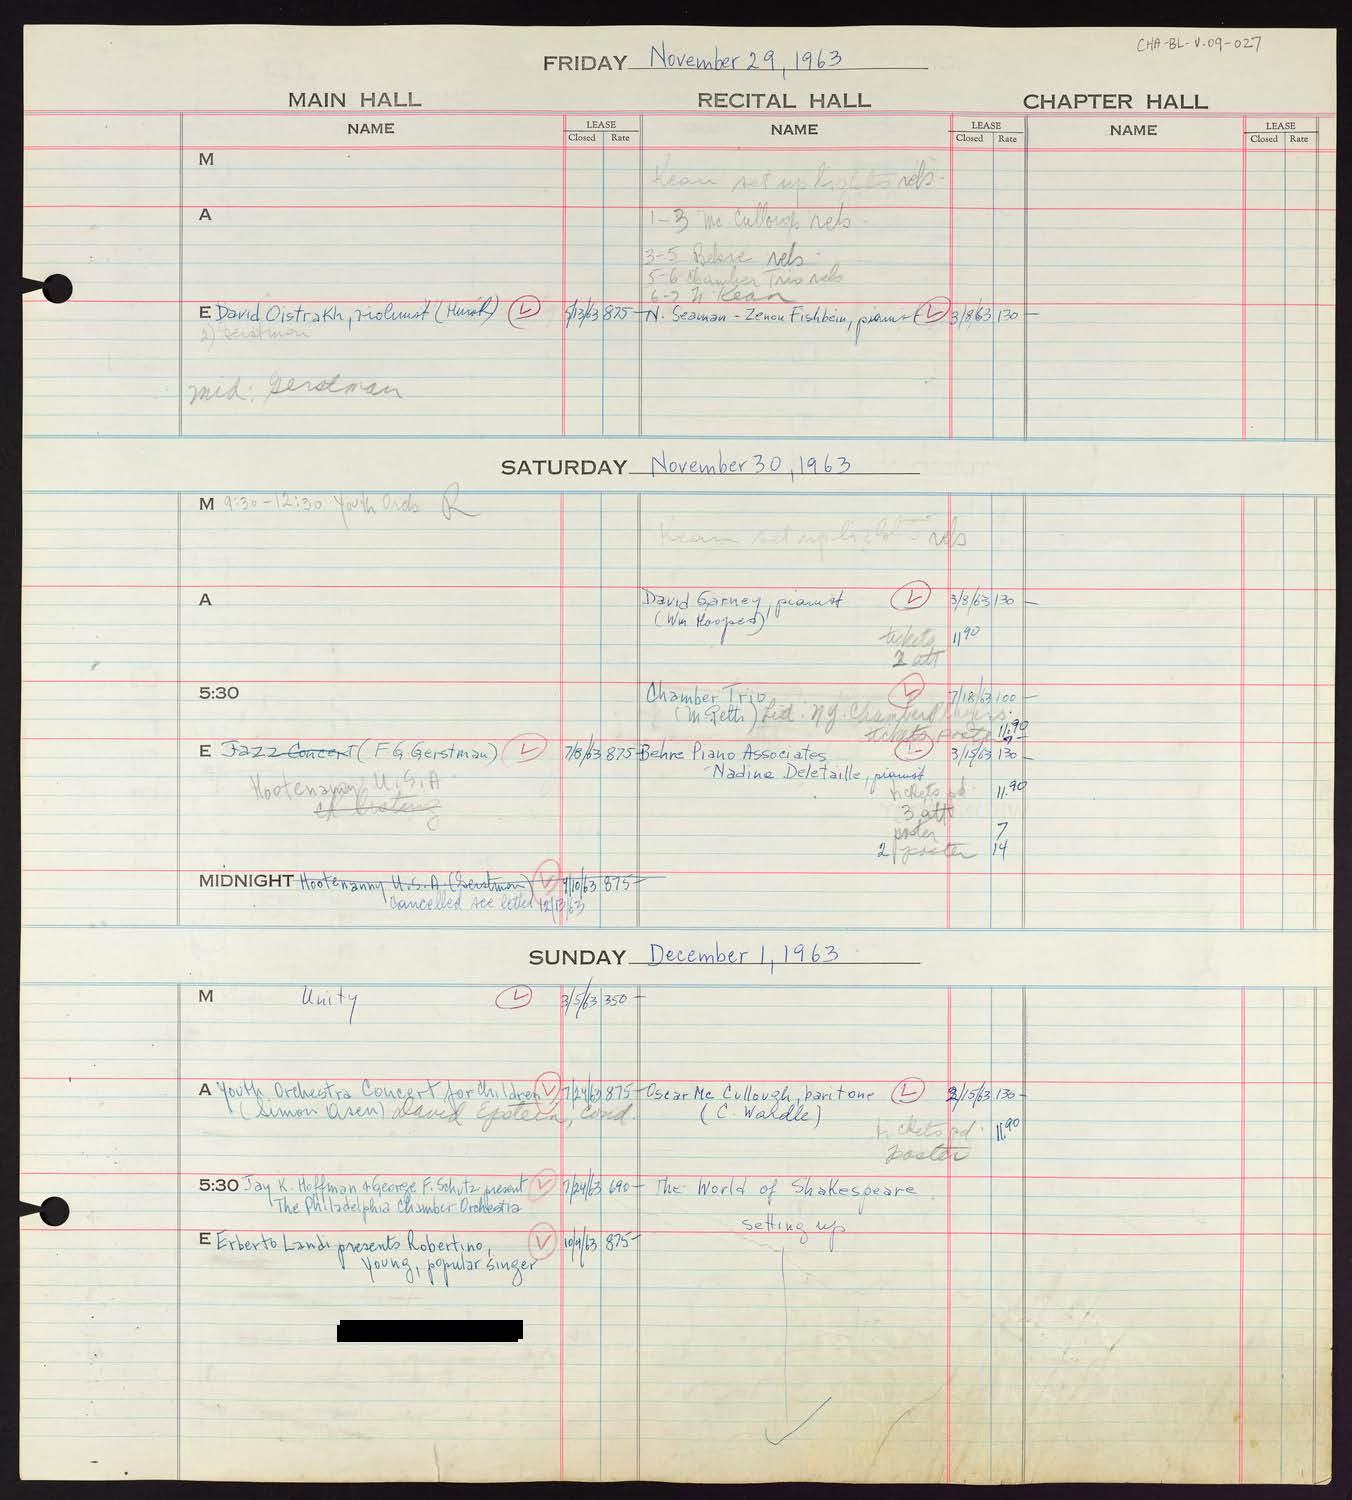 CHA-BL-V.09-027
FRIDAY November 29, 1963
MAIN HALL RECITAL HALL CHAPTER HALL
NAME LEASE NAME LEASE NAME LEASE
Closed Rate Closed Rate Closed Rate
M
Kean set up lights rels-
A
1-3 Mc Cullough rels-
3-5 Behre rels-
5-6 Chamber Trio rels
6-7 Kean
E David Oistrakh, violinist (Hurok) L 5/13/63 875- N. Seaman - Zenon Fishbein, pianist L 3/8/63 130-
2) Gerstman
mid: Gerstman
SATURDAY November 30, 1963
M 9:30-12:30 Youth Orch R
Kean set up lights rels
A David Garney, pianist L 3/8/63 130-
(Wm Hooper)
tickets 11.90
2 att
5:30 Chamber Trio L 7/18/63 100-
(M. Peth) List: N.Y. Chamber
tickets poster 11.90
7-
E Jazz Concert (F G Gerstman) L 7/8/63 875- Behre Piano Associates L 3/15/63 130-
Nadine Deletaille, pianist
Hootenanny U.S.A
tickets pd. 11.90
3 att
poster 7
2 poster 14
MIDNIGHT Hootenanny U.S.A. (Gerstman) L 9/10/63 875-
Cancelled see letter 12/13/63
SUNDAY December 1, 1963
M Unity L 3/5/63 350-
A Youth Orchestra Concert for Children L 7/24/63 875- Oscar Mc Cullough, baritone L 2/15/63 130-
(Simon Asen) David Epstein, Cond. (C. Wardle)
tickets pd. 11.90
poster
5:30 Jay K. Hoffman & George F. Schutz present L 7/24/63 690- The World of Shakespeare
The Philadelphia Chamber Orchestra
setting up
E Erberto Landi presents Robertino, L 10/9/63 875-
young, popular singer